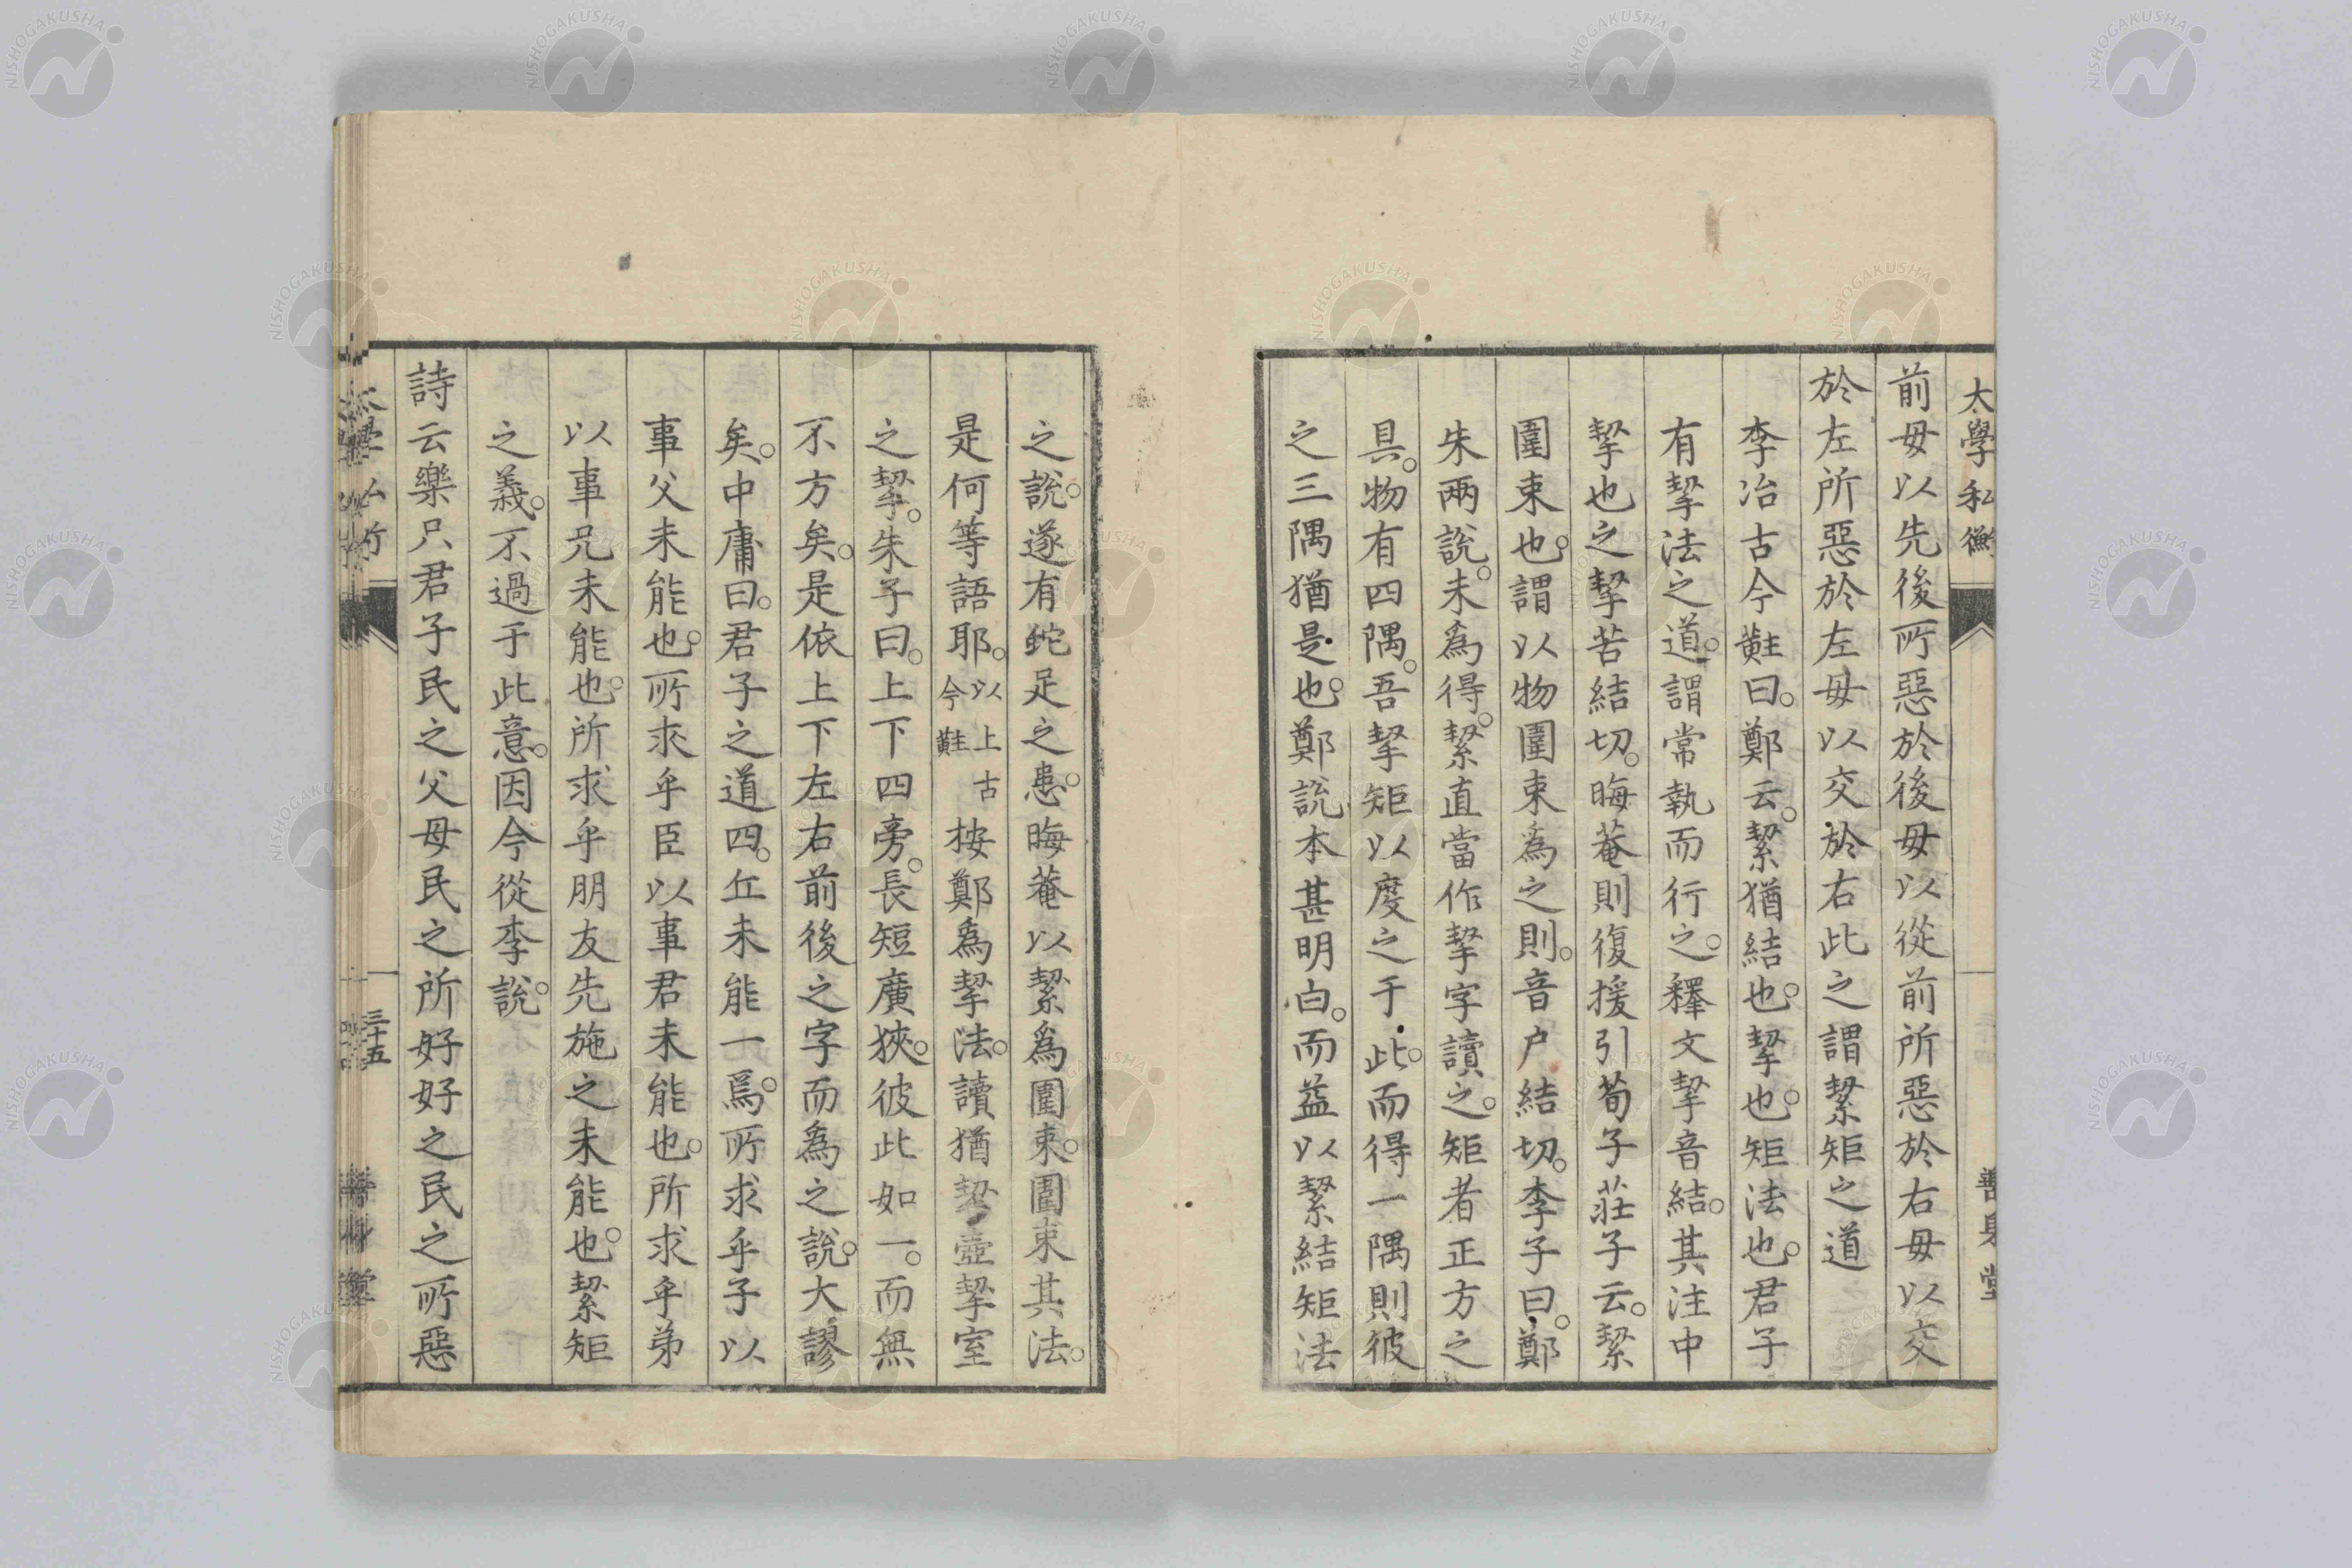 大學私衡
善身堂
前毋以先後所惡於後毋以從前所惡於右毋以交
於左所惡於左毋以交於右此之謂絜矩之道
李冶古今黈曰。鄭云。絜猶結也。挈也。矩法也。君子
有挈法之道。謂常執而行之。釋文挈音結。其注中
挈也之挈苦結切。晦菴則復援引荀子莊子云。絜
圍束也。謂以物圍束為之則。音户結切。李子曰。鄭
朱兩說。未為得。絜直當作挈字讀之。矩者正方之
具。物有四隅。吾挈矩以度之于此。而得一隅則彼
之三隅猶是也。鄭說本甚明白。而益以絜結矩法
之說。遂有蛇足之患。晦菴以絜為圍束。圍束其法。
是何等語耶。以上古今黈按鄭為挈法。讀猶挈壺挈室
之挈。朱子曰。上下四旁。長短廣狹。彼此如一。而無
不方矣。是依上下左右前後之字而為之說。大謬
矣。中庸曰。君子之道四。丘未能一焉。所求乎子以
事父未能也。所求乎臣以事君未能也。所求乎弟
以事兄未能也。所求乎朋友先施之未能也。絜矩
之義。不過于此意。因今從李說。
詩云樂只君子民之父母民之所好好之民之所惡
三十五